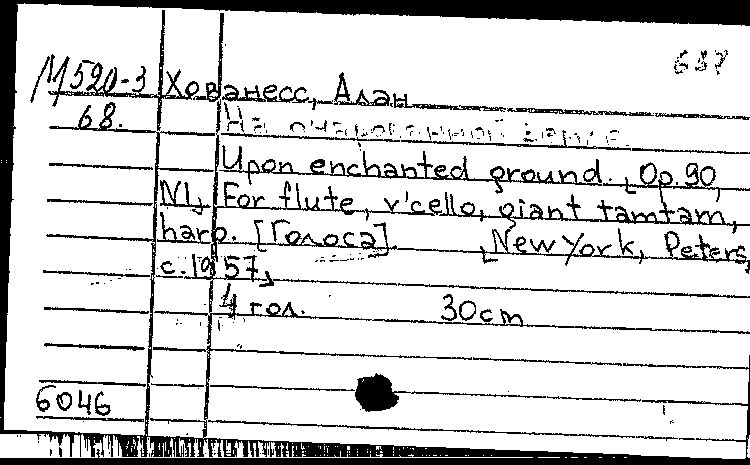 637
М520-3 Хованесс, Алан
68. На очарованной земле.
Upon enchanted ground. Op.90,
N1, For flute, v'cello, giant tamtam,
harp. [Голоса]. New York, Peters,
c.1957,
4 гол. 30cm
6046